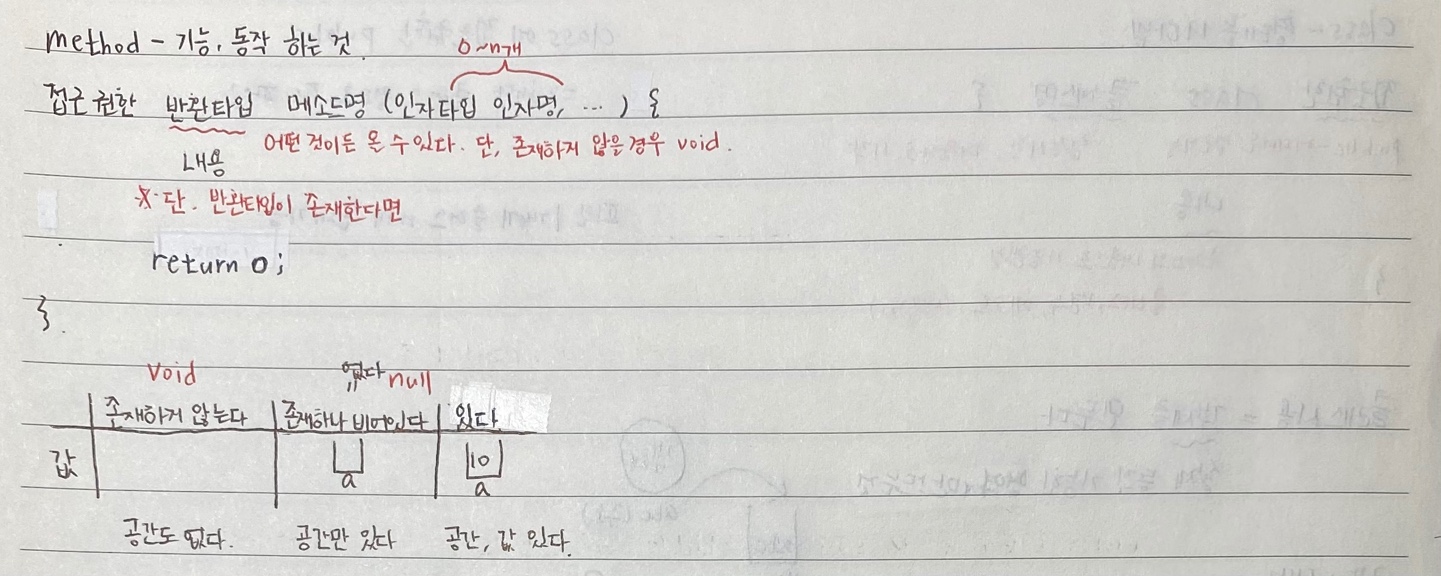 method - 기능, 동작 하는 것.
0~n개
접근 권한 반환타입 메소드명 (인자타입 인자명, ...) {
어떤 것이든 올 수 있다. 단, 존재하지 않을 경우 void.
내용
※ 단. 반환타입이 존재한다면
return 0;
}.
void 없다 null
존재하게 않는다 존재하나 비어있다 있다
값 10
a a
공간도 없다. 공간만 있다 공간, 값 있다.